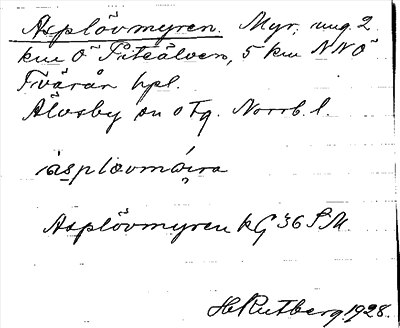 Asplövmyren. Myr, ung. 2
km Ö Piteälven, 5 km NNÖ
Tvärån hpl.
Älvsby sn o Tg. Norrb. l.
Asplövmyren kG 36 SM.
H. Rutberg 1928.